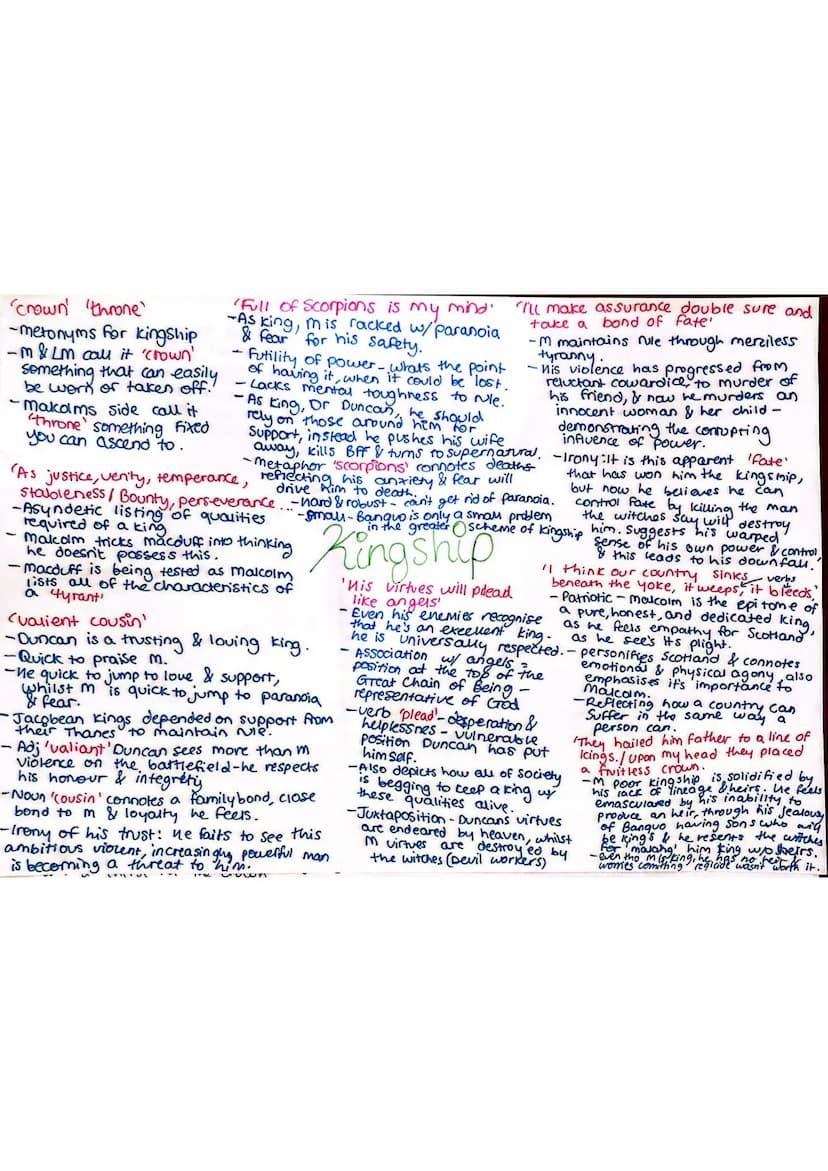 'crown' 'throne'
-metonyms for kingship
-M & LM call it 'crown'
something that can easily
be worn or taken off.
-Malcolms side call it
'throne' something fixed
you can ascend to.
'As justice, verity, temperance,
stableness / Bounty, perseverance...
-Asyndetic listing of qualities
required of a king
- Malcolm tricks macduff into thinking
he doesn't possess this.
-macduff is being tested as Malcolm
lists all of the characteristics of
a 'tyrant'
'valient cousin'
-Duncan is a trusting & loving king.
-Quick to praise M.
-He quick to jump to love & support,
whilst M is quick to jump to paranoia
& fear.
-Jacobean kings depended on support from
their Thanes to maintain rule.
- Adj 'valiant' Duncan sees more than M
violence on the battlefield-he respects
his honour & integrety
-Noun 'cousin' connotes a family bond, close
bond to M & loyalty he feels.
-Irony of his trust: He fails to see this
ambitious violent, increasingly powerful man
is becoming a threat to him.
'Full of Scorpions is my mind'
-As king, M is racked w/ paranoia
& fear for his safety.
- Futility of power- whats the point
of having it, when it could be lost.
-Lacks mental toughness to rule.
-As King, Or Duncan, he should
rely on those around him for
support, instead he pushes his wife
away, kills BFF & turns to supernatural.
-metaphor 'scorpions' connotes deaths
reflecting his anxiety & fear will
drive him to death.
-hard & robust- can't get rid of paranoia.
-small- Banquo is only a small problem
in the greater scheme of kingship
Kingship
'His virtues will plead
like angels'
-Even his enemies recognise
that he's an excellent king-
he is universally respected.
- Association w/ angels =
position at the top of the
Great Chain of Being -
representative of God
-verb 'plead'- desperation &
helplessnes - vulnerable
position Duncan has put
himself.
-Also depicts how all of society
is begging to keep a king w/
these qualities alive.
-Juxtaposition- Duncans virtues
are endeared by heaven, whilst
M virtues are destroyed by
the witches (Devil workers)
'I'll make assurance double sure and
take a bond of fate'
-M maintains rule through merciless
tyranny.
-His violence has progressed from
reluctant cowardice, to murder of
his friend, & now he murders an
innocent woman & her child -
demonstrating the corrupting
influence of power.
-Irony: It is this apparent 'fate'
that has won him the kingship,
but now he believes he can
control fate by killing the man
the witches say will destroy
him. Suggests his warped
sense of his own power & control,
& this leads to his downfall.
'I think our country sinks verbs
beneath the yoke, it weeps, it bleeds,'
- Patriotic - malcolm is the epitome of
a pure, honest, and dedicated king,
as he feels empathy for Scotland
as he see's its plight.
- personifies Scotland & connotes
emotional & physical agony, also
emphasises it's importance to
Malcolm.
-Reflecting how a country can
suffer in the same way a
person can.
'They hailed him father to a line of
kings./ upon my head they placed
a fruitless crown.
- M poor kingship is solidified by
his lack of lineage & heirs. He feels
emasculated by his inability to
produce an heir, through his jealousy
of Banquo having sons who will
be kings & he resents the witches
for 'making' him king w/o heirs.
-even tho M is king, he has no heir &
worries comitting regicide wasn't worth it.